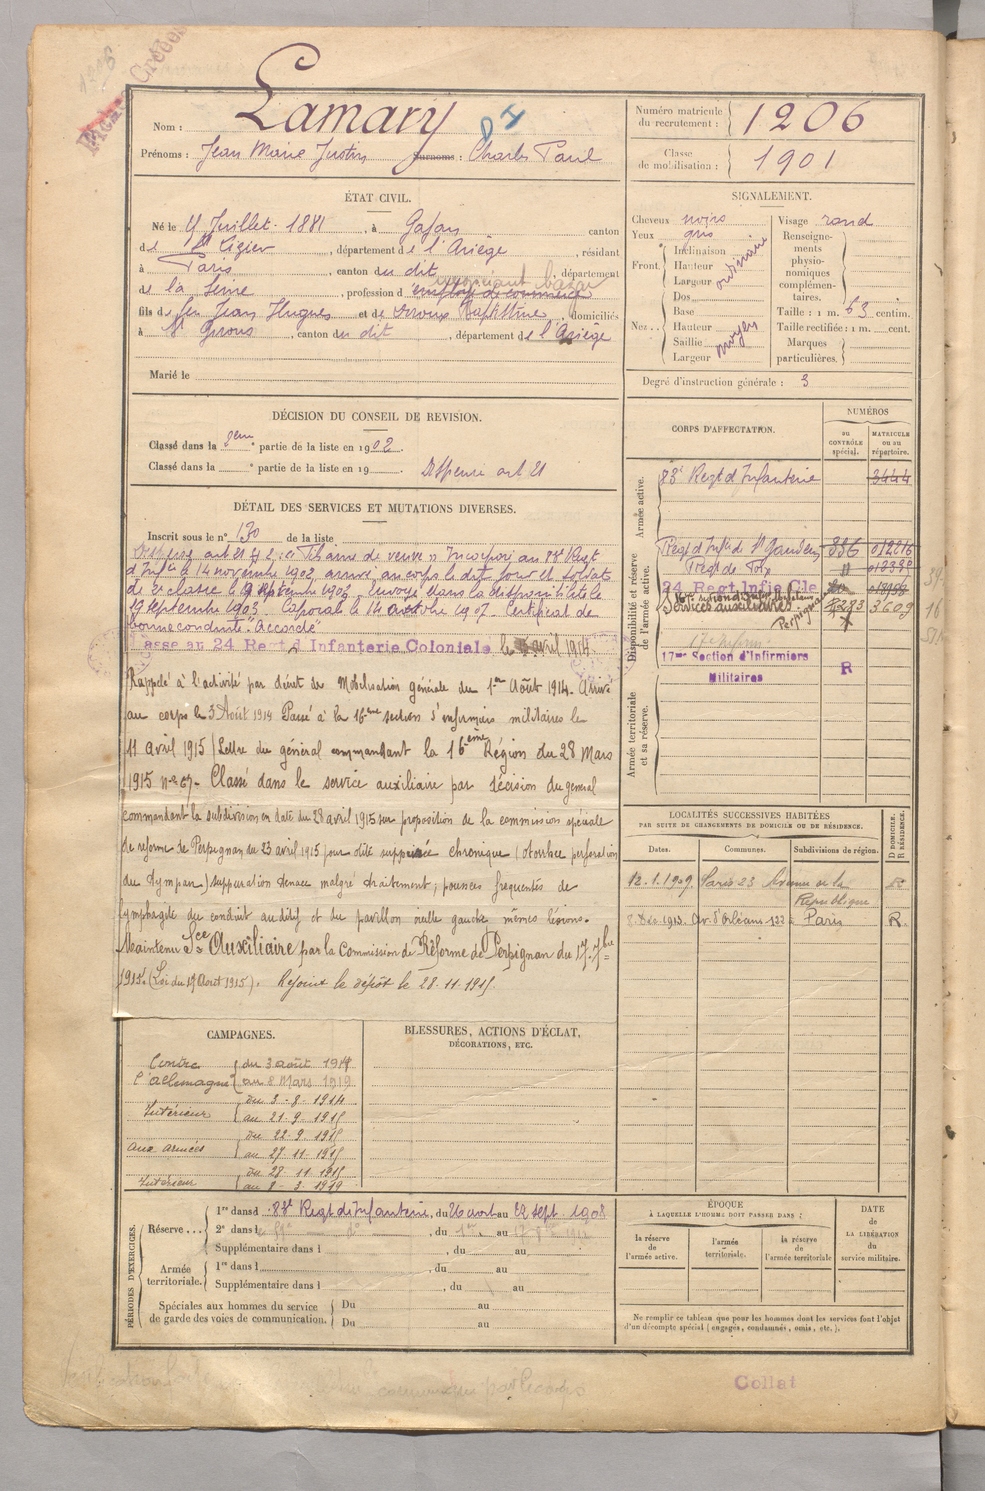 1206
Nom : Lamary
Prénoms : Jean Marie Justin Surnoms : Charles Paul
Numéro matricule du recrutement : 1206
Classe de mobilisation : 1901
ÉTAT CIVIL.
Né le 4 Juillet 1881, à Gajan canton
de St Lizier, département de l'Ariège, résidant
à Paris, canton du dit, département
négociant bazar
de la Seine, profession d'employé de commerce
fils de feu Jean Hugues et de Baptistine, domiciliés
à St Girons, canton du dit, département de l'Ariège
Marié le
SIGNALEMENT.
Cheveux noirs
Yeux gris
Front. Inclinaison
Hauteur
Largeur
ordinaire
Nez... Dos
Base
Hauteur
Saillie
Largeur
moyen
Visage rond
Renseignements physionomiques complémentaires.
Taille : 1 m. 63 centim.
Taille rectifiée : 1 m. cent.
Marques particulières.
Degré d'instruction générale : 3
DÉCISION DU CONSEIL DE REVISION.
Classé dans la 2ème partie de la liste en 1902.
Classé dans la e partie de la liste en 19 Dispensé art 21
DÉTAIL DES SERVICES ET MUTATIONS DIVERSES.
Inscrit sous le n° 130 de la liste
Dispensé art 21 fils aîné de veuve. Incorporé au 88e Regt
d'Infie le 14 novembre 1902, arrivé au corps le dit jour et soldat
de 2e classe le 19 septembre 1903. Envoyé dans la disponibilité le
19 septembre 1903. Caporal le 14 octobre 1907. Certificat de
bonne conduite "Accordé"
asse au 24 Regt d'Infanterie Coloniale le avril 1914.
Rappelé à l'activité par décret de Mobilisation générale du 1er Août 1914. Arrivé
au corps le 3 Août 1914 Passé à la 16ème section d'infirmiers militaires le
11 avril 1915 (Lettre du général commandant la 16ème Région du 28 Mars
1915 n° 67. Classé dans le service auxiliaire par décision du général
commandant la subdivision en date du 28 avril 1915 sur proposition de la commission spéciale
de réforme de Perpignan du 23 avril 1915 pour otite suppurée chronique (otorrhée perforation
du tympan) suppuration tenace malgré traitement, poussées fréquentes de
lymphagite du conduit auditif et du pavillon oreille gauche mêmes lésions.
Maintenu Sce Auxiliaire par la Commission de Réforme de Perpignan du 17 7bre
1915. (Loi du 17 Août 1915). Rejoint le dépôt le 28.11.1915.
CORPS D'AFFECTATION.
NUMÉROS
DU CONTRÔLE spécial.
MATRICULE OU AU répertoire.
Armée active.
88e Regt d'Infanterie 3444
Disponibilité et réserve de l'armée active.
Regt d'Infie de St Gaudens 336 012216
Regt de Foix
24 Regt Infie Cle
Services auxiliaires. Perpignan 3609
16
17me Section d'Infirmiers Militaires R
Armée territoriale et sa réserve.
LOCALITÉS SUCCESSIVES HABITÉES
PAR SUITE DE CHANGEMENTS DE DOMICILE OU DE RÉSIDENCE.
Dates. Communes. Subdivisions de région. D DOMICILE. R RÉSIDENCE.
12.1.1909. Paris 23 Avenue de la République R
8 Déc. 1913. Av. d'Orléans 132 Paris R.
CAMPAGNES.
Contre l'allemagne du 3 août 1914
au 8 Mars 1919
Intérieur du 3-8-1914
au 21-9-1915
aux armées du 22-9-1915
au 27-11-1915
Intérieur du 28-11-1915
au 8-3-1919
BLESSURES, ACTIONS D'ÉCLAT,
DÉCORATIONS, ETC.
PÉRIODES D'EXERCICES.
Réserve... 1re dans l 88e Regt d'Infanterie, du 26 aout au 22 sept. 1908
2e dans l
Supplémentaire dans l , du au
Armée territoriale. 1re dans l , du au
Supplémentaire dans l , du au
Spéciales aux hommes du service de garde des voies de communication. Du au
Du au
ÉPOQUE
À LAQUELLE L'HOMME DOIT PASSER DANS :
la réserve de l'armée active.
l'armée territoriale.
la réserve de l'armée territoriale
DATE
de
LA LIBÉRATION
du
service militaire.
Ne remplir ce tableau que pour les hommes dont les services font l'objet
d'un décompte spécial (engagés, condamnés, omis, etc.).
Collat